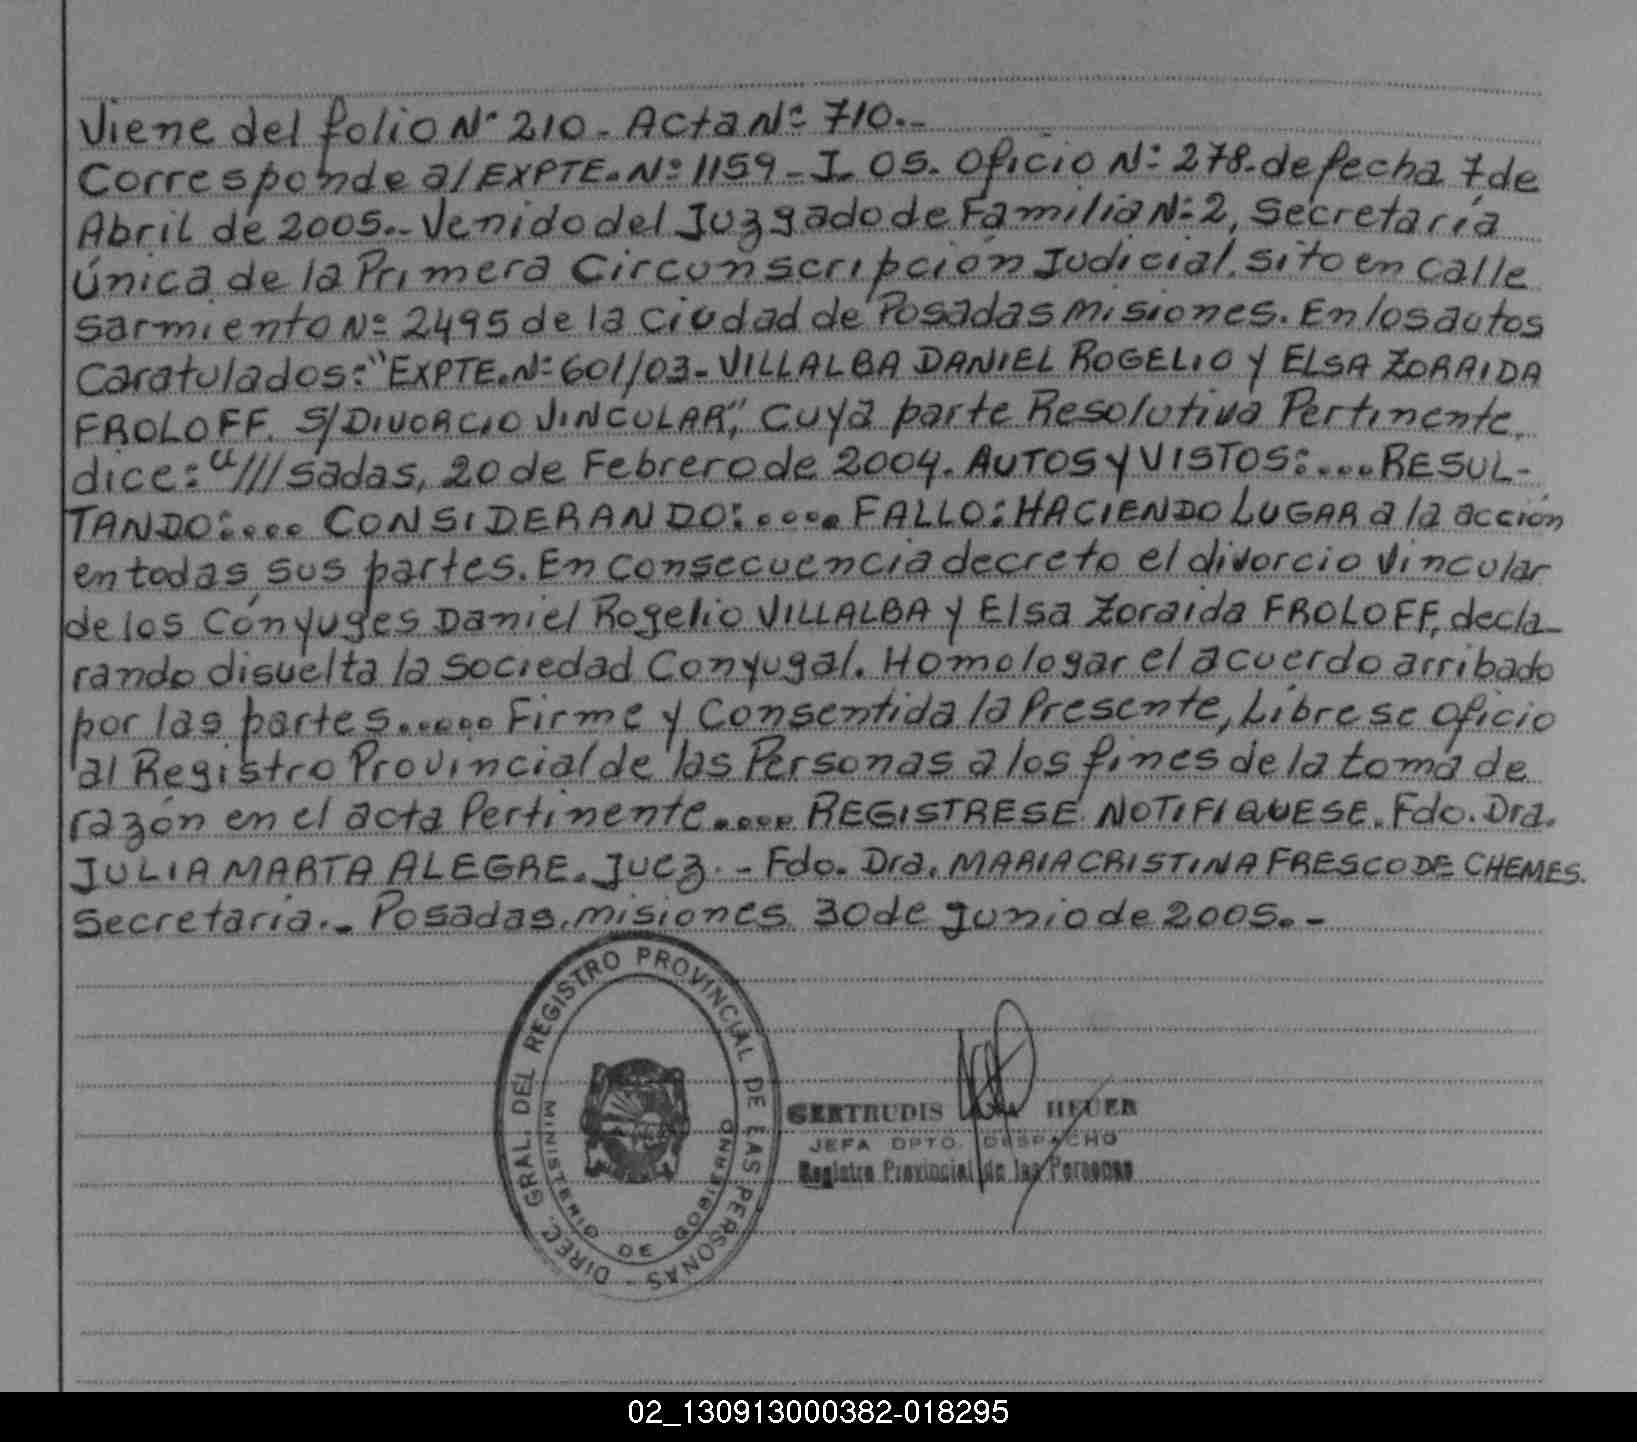 Viene del folio Nº 210. Acta Nº 710.-
Corresponde al EXPTE. Nº 1159 - I - 05. Oficio Nº 278. de fecha 7 de
Abril de 2005.- Venido del Juzgado de Familia Nº 2, Secretaría
Única de la Primera Circunscripción Judicial. sito en calle
Sarmiento Nº 2495 de la ciudad de Posadas Misiones. En los autos
Caratulados: "EXPTE. Nº 601/03 - VILLALBA DANIEL ROGELIO y ELSA ZORAIDA
FROLOFF. S/ DIVORCIO VINCULAR", Cuya parte Resolutiva Pertinente
dice: "///sadas, 20 de Febrero de 2004. AUTOS y VISTOS:.... RESUL-
TANDO:.... CONSIDERANDO:.... FALLO: HACIENDO LUGAR a la acción
en todas sus partes. En Consecuencia decreto el divorcio Vincular
de los Cónyuges Daniel Rogelio VILLALBA y Elsa Zoraida FROLOFF, decla-
rando disuelta la Sociedad Conyugal. Homologar el acuerdo arribado
por las partes...... Firme y Consentida la Presente, Líbrese Oficio
al Registro Provincial de las Personas a los fines de la toma de
razón en el acta Pertinente..... REGISTRESE. NOTIFIQUESE. Fdo. Dra.
JULIA MARTA ALEGRE. Juez. - Fdo. Dra. MARIA CRISTINA FRESCO DE CHEMES.
Secretaria.- Posadas, Misiones 30 de Junio de 2005.-
DIREC. GRAL. DEL REGISTRO PROVINCIAL DE LAS PERSONAS -
MINISTERIO DE GOBIERNO
GERTRUDIS HEUER
JEFA DPTO. DESPACHO
Registro Provincial de las Personas
02_130913000382-018295